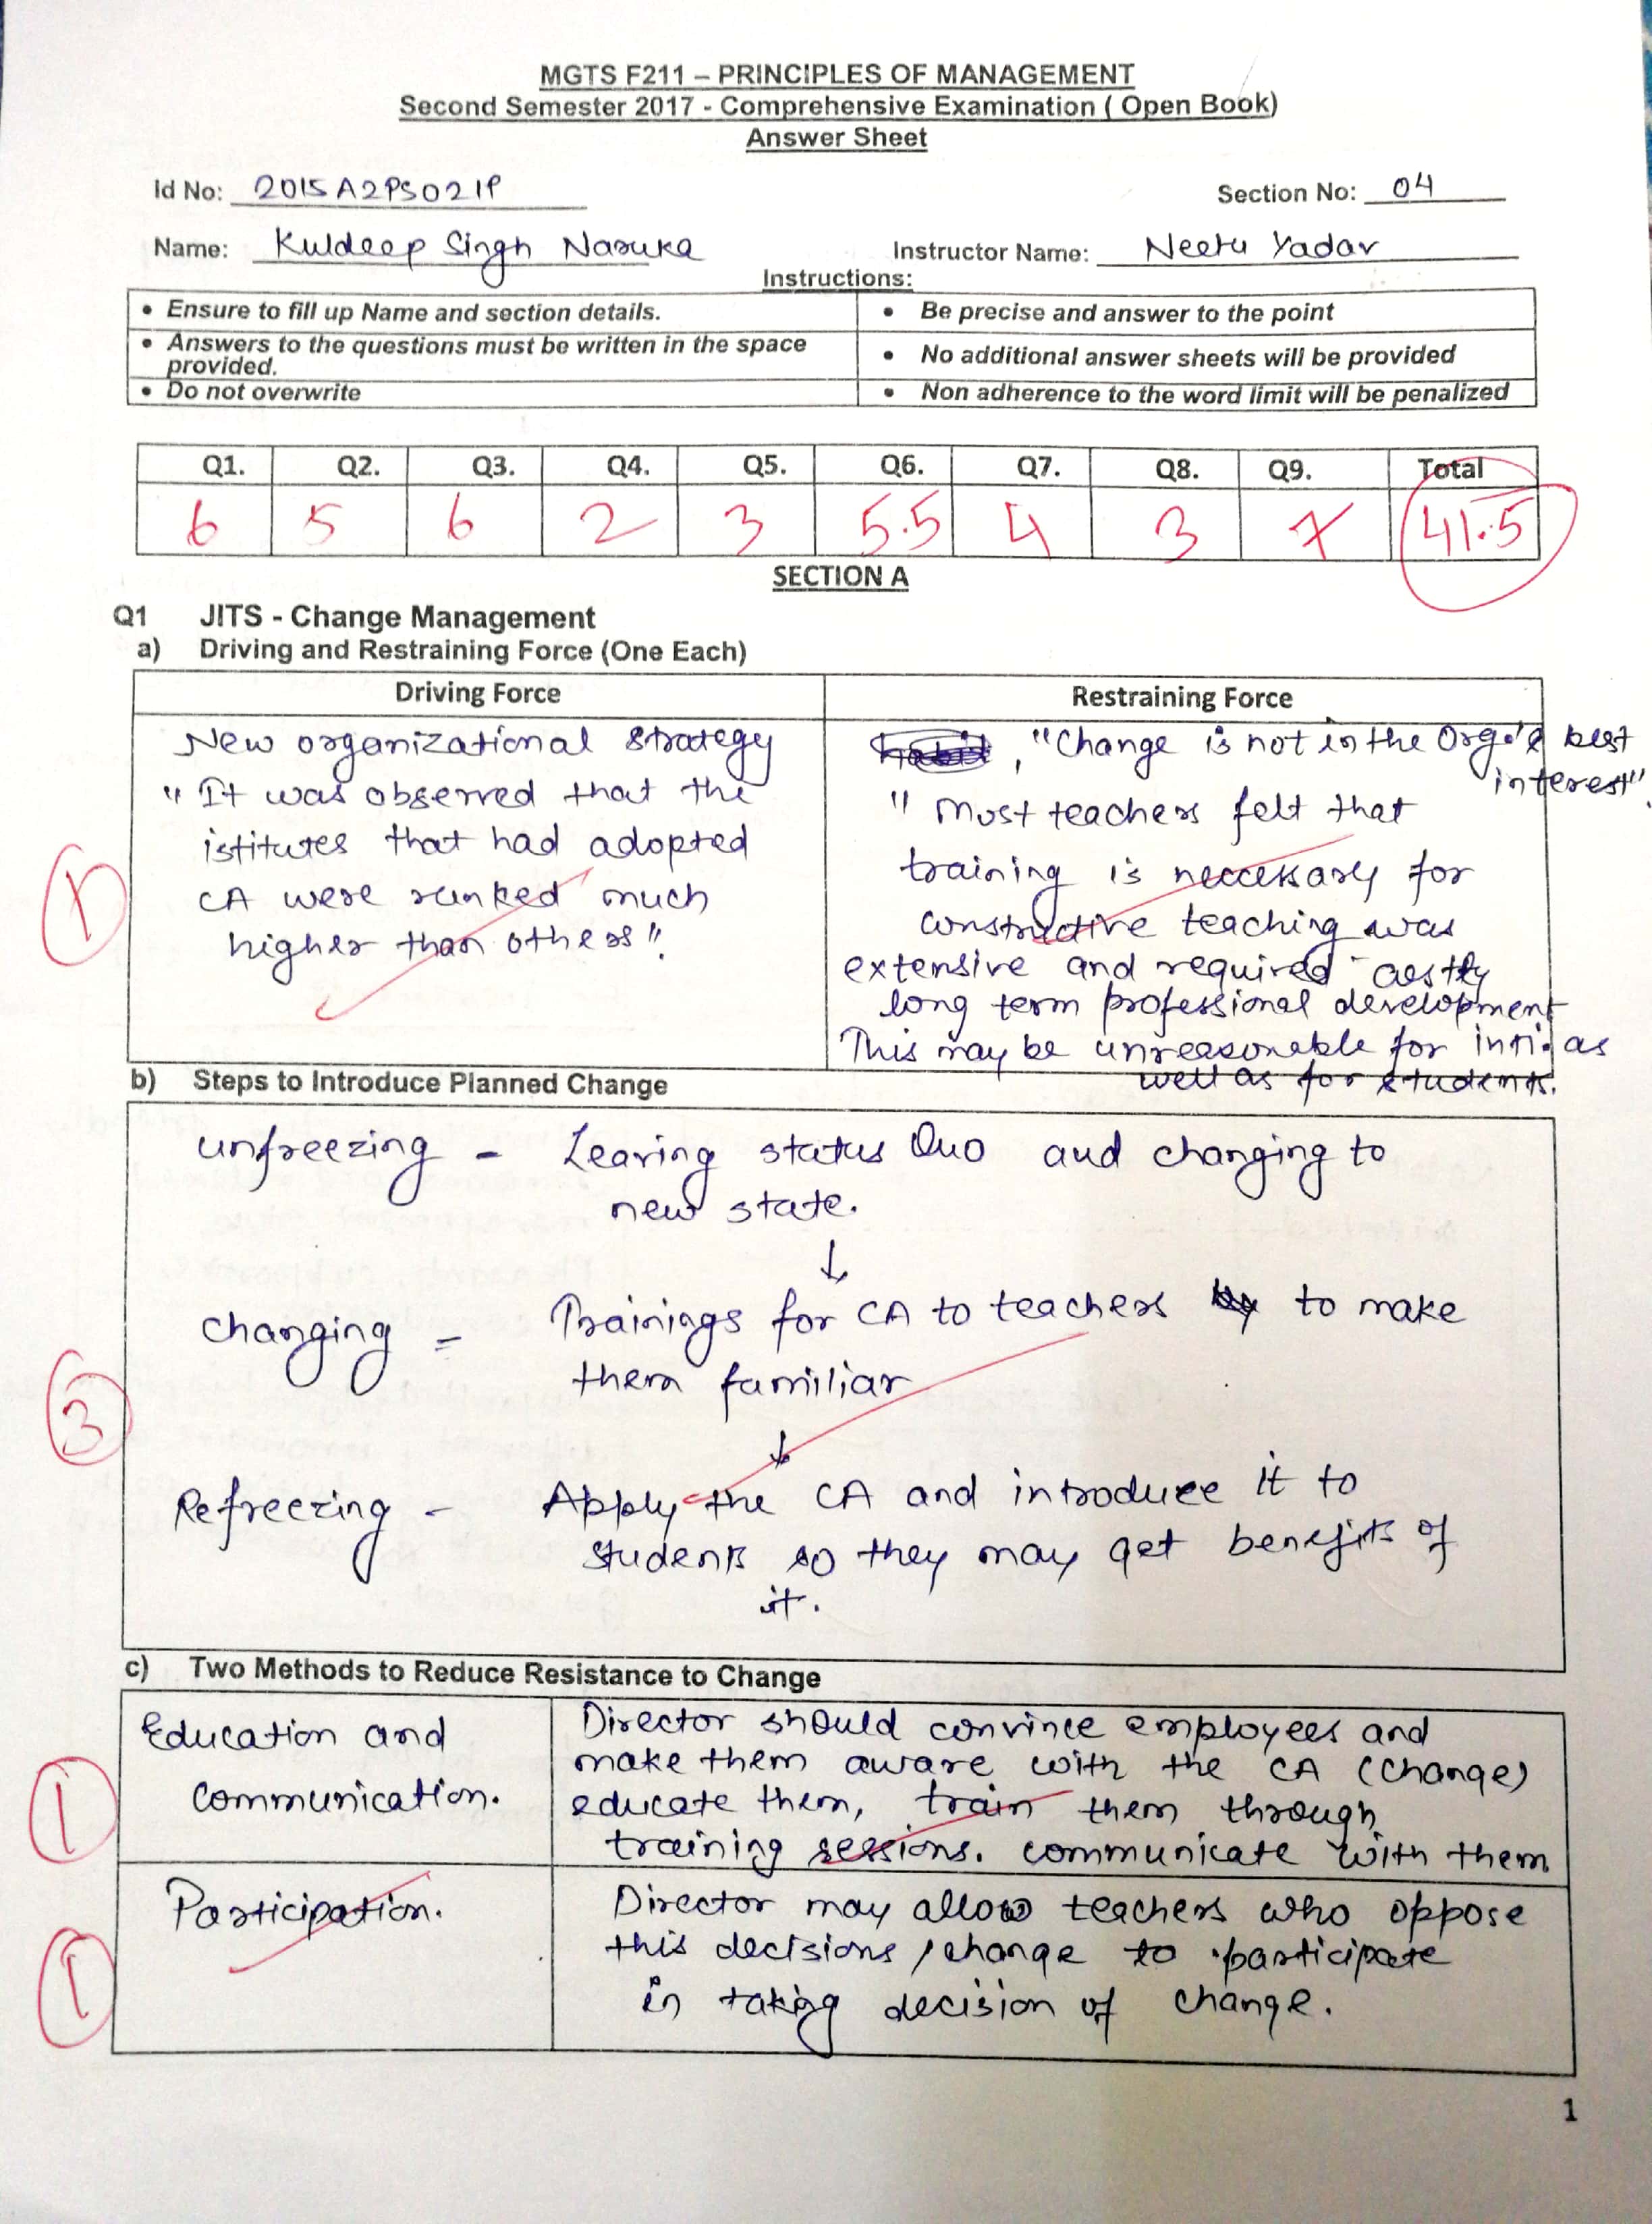 MGTS F211 – PRINCIPLES OF MANAGEMENT
Second Semester 2017 - Comprehensive Examination ( Open Book)
Answer Sheet
Id No: 2015A2PS021P Section No: 04
Name: Kuldeep Singh Naruka Instructor Name: Neetu Yadav
Instructions:
• Ensure to fill up Name and section details. • Be precise and answer to the point
• Answers to the questions must be written in the space
provided. • No additional answer sheets will be provided
• Do not overwrite • Non adherence to the word limit will be penalized
Q1. Q2. Q3. Q4. Q5. Q6. Q7. Q8. Q9. Total
6 5 6 2 3 5.5 4 3 7 41.5
SECTION A
Q1 JITS - Change Management
a) Driving and Restraining Force (One Each)
Driving Force
New organizational strategy
" It was observed that the
istitutes that had adopted
CA were ranked much
higher than others".
1
Restraining Force
, "Change is not in the Org's best
interest".
" Most teachers felt that
training is neccessary for
constructive teaching was
extensive and required costly
long term professional development
This may be unreasonable for as
well as for students.
b) Steps to Introduce Planned Change
unfreezing - Leaving status Quo and changing to
new state.
↓
changing - Trainings for CA to teachers to make
them familiar
↓
3
Refreezing - Apply the CA and introduce it to
students so they may get benefits of
it.
c) Two Methods to Reduce Resistance to Change
Education and
communication.
1
Director should convince employees and
make them aware with the CA (change)
educate them, train them through
training sessions. communicate with them
Participation.
1
Director may allow teachers who oppose
this decisions / change to participate
in taking decision of change.
1